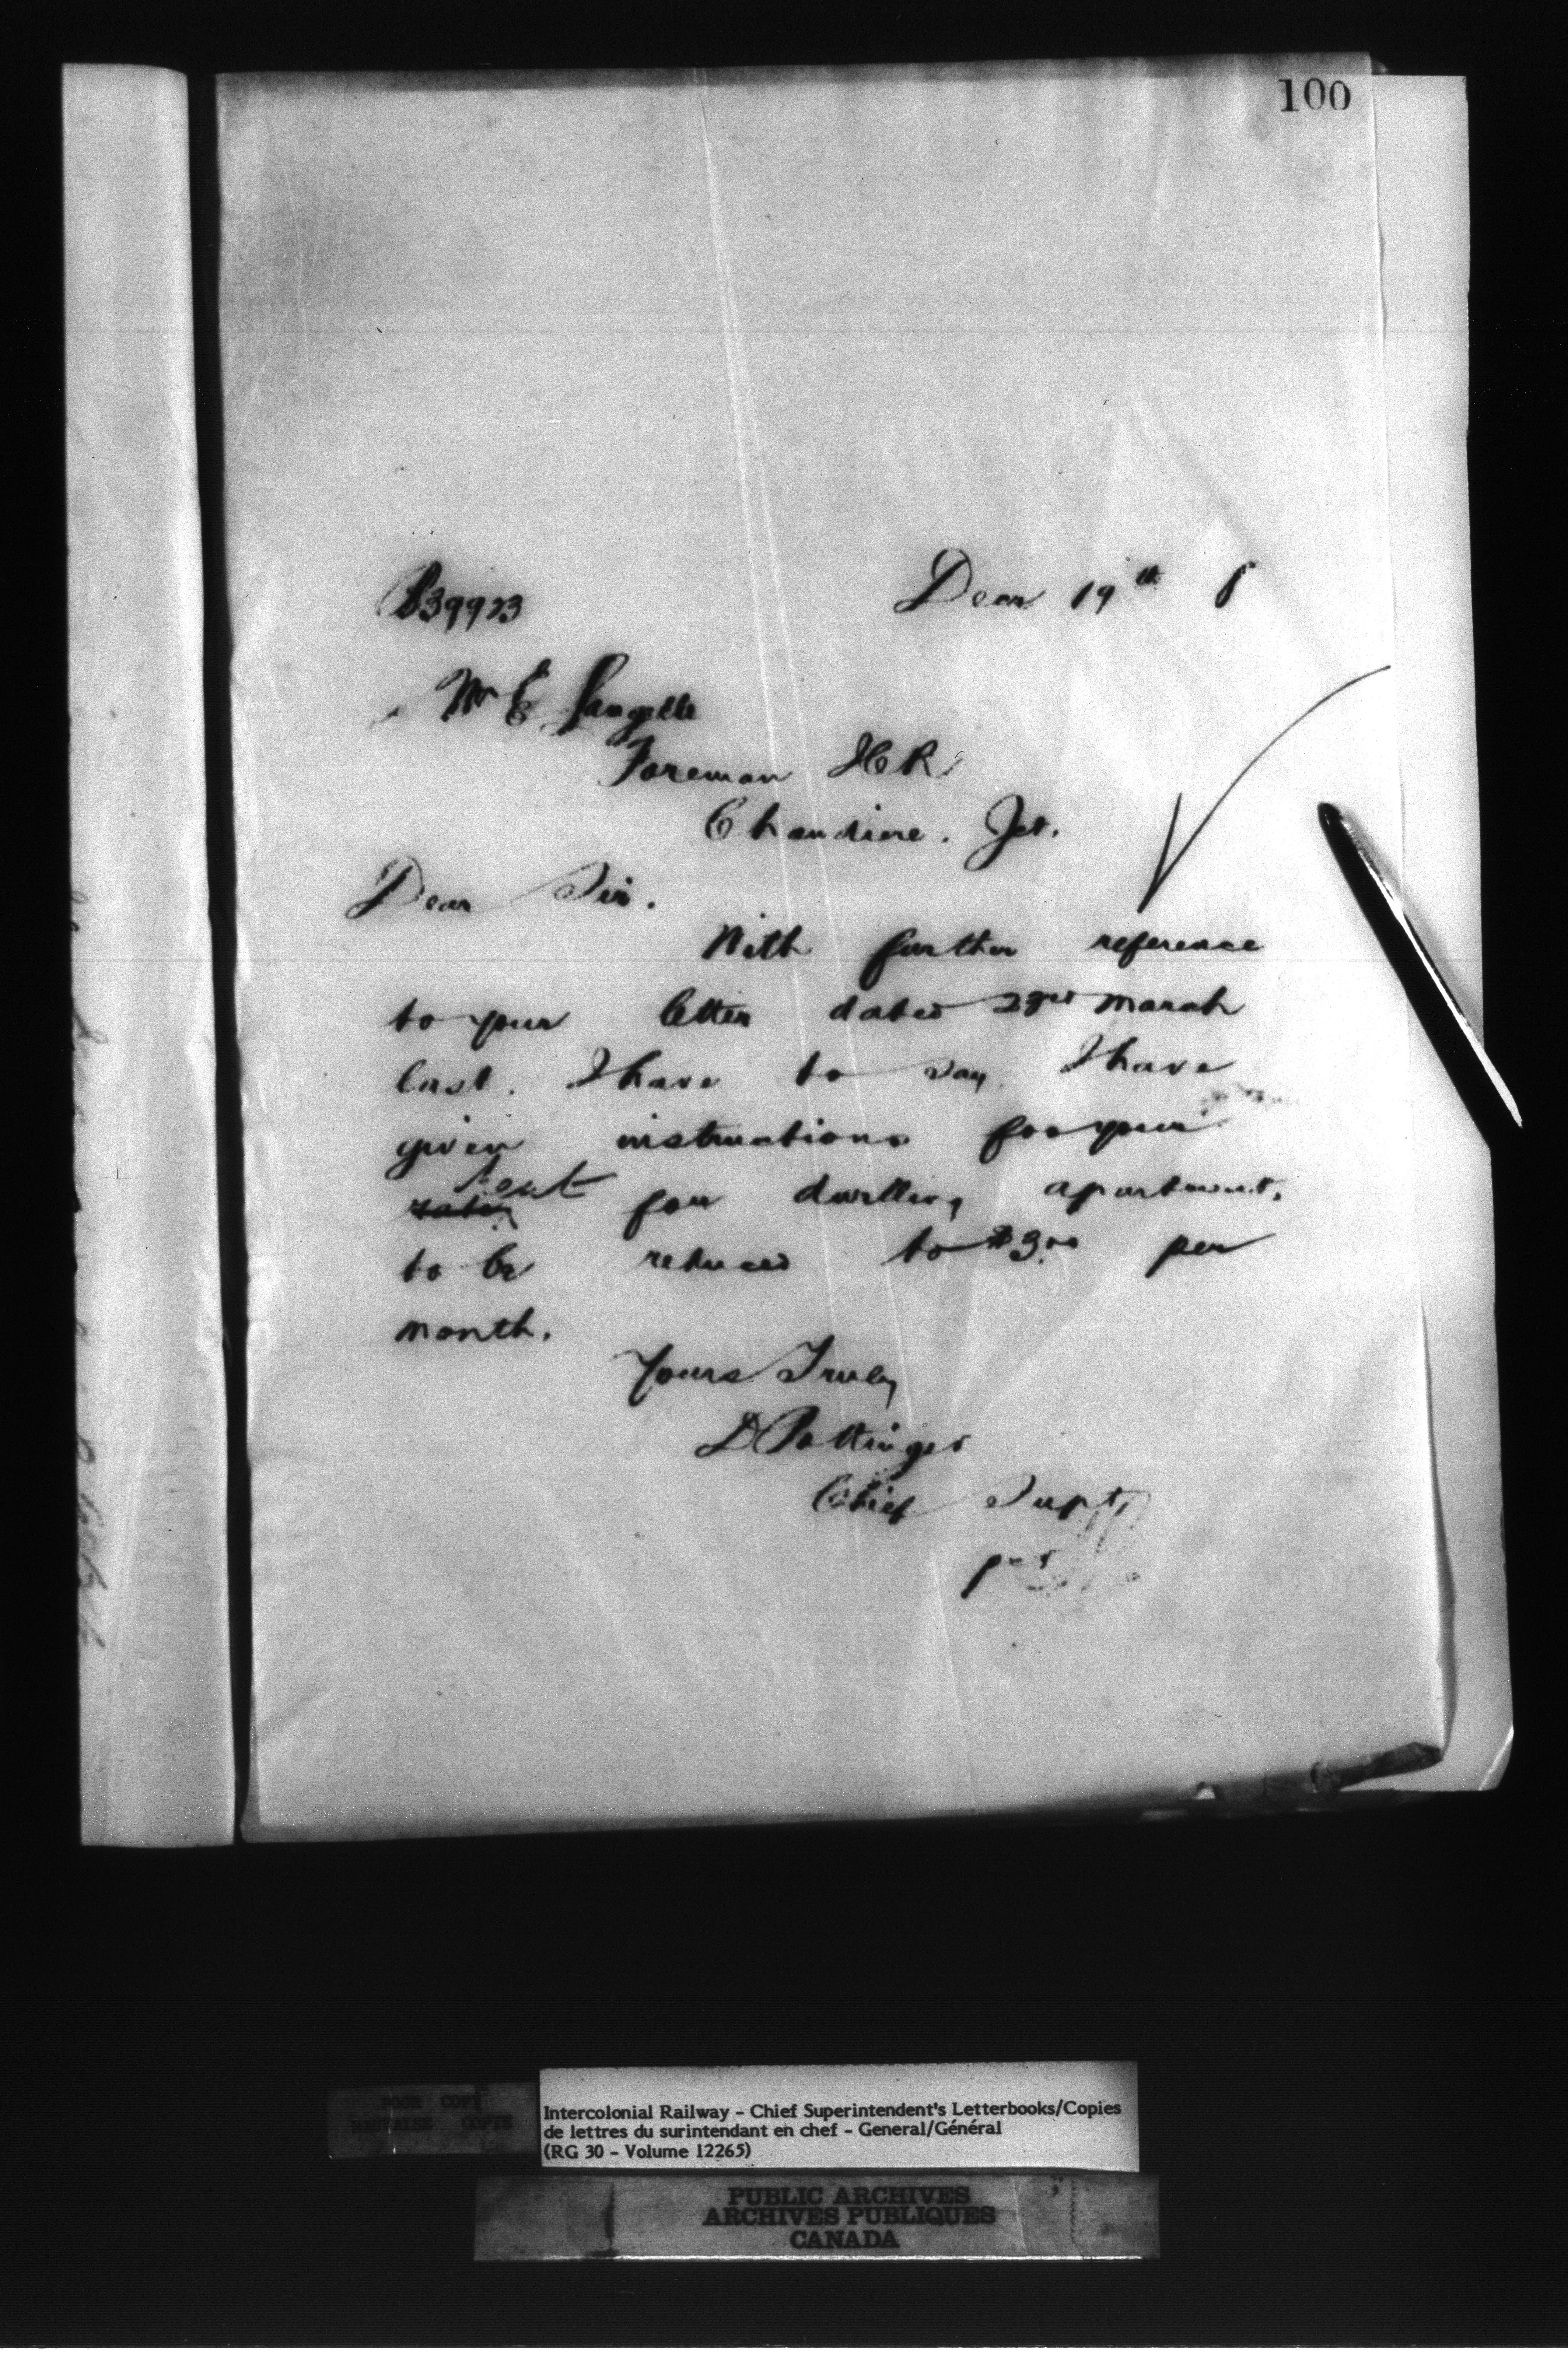 100
B39923
Decr 19th 8
Mr E Langelle
Foreman ICR
Chaudiere. Jct.
Dear Sir.
With further reference
to your letter dated 23rd March
last. I have to say I have
given instructions for your
rent for dwelling apartment,
to be reduced to $3.00 per
month.
Yours Truly
D Pottinger
Chief Supt,
per
POOR COPY
MAUVAISE COPIE
Intercolonial Railway - Chief Superintendent's Letterbooks/Copies
de lettres du surintendant en chef - General/Général
(RG 30 - Volume 12265)
PUBLIC ARCHIVES
ARCHIVES PUBLIQUES
CANADA